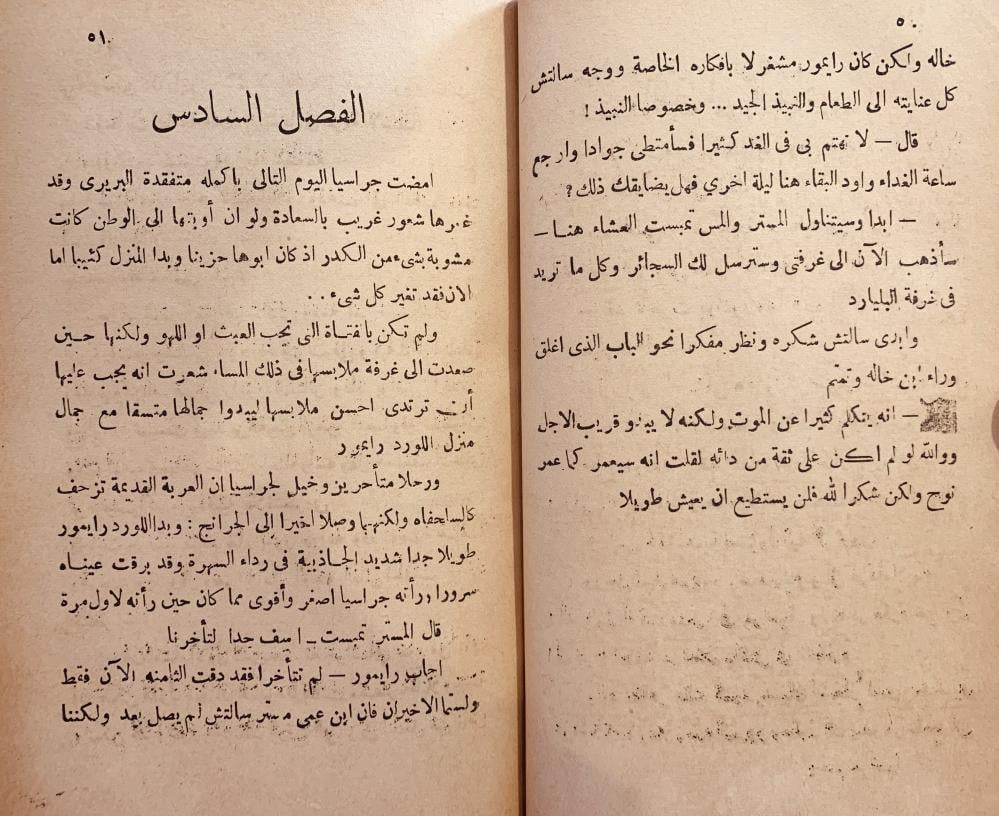 ٥٠
خاله ولكن كان رايمور مشغولا بافكاره الخاصة ووجه سالتش
كل عنايته الى الطعام والنبيذ الجيد ... وخصوصا النبيذ !
قال — لا تهتم بى فى الغد كثيرا فسأمتطى جوادا وارجع
ساعة الغداء واود البقاء هنا ليلة اخري فهل يضايقك ذلك ؟
— ابدا وسيتناول المستر والمس تمبست العشاء هنا —
سأذهب الآن الى غرفتى وسترسل لك السجائر وكل ما تريد
فى غرفة البليارد
وابدى سالتش شكره ونظر مفكرا نحو الباب الذى اغلق
وراء ابن خاله وتمتم
— انه يتكلم كثيرا عن الموت ولكنه لا يبدو قريب الاجل
ووالله لو لم اكن على ثقة من دائه لقلت انه سيعمر كما عمر
نوح ولكن شكرا لله فلن يستطيع ان يعيش طويلا
٥١
الفصل السادس
امضت جراسيا اليوم التالى باكمله متفقدة البريرى وقد
غمرها شعور غريب بالسعادة ولو ان أوبتها الى الوطن كانت
مشوبة بشىء من الكدر اذ كان ابوها حزينا وبدا المنزل كئيبا اما
الان فقد تغير كل شىء . .
ولم تكن بالفتاة التى تحب العبث او اللهو ولكنها حين
صعدت الى غرفة ملابسها فى ذلك المساء شعرت انه يجب عليها
أن ترتدى احسن ملابسها ليبدوا جمالها متسقا مع جمال
منزل اللورد رايمور
ورحلا متأخرين وخيل لجراسيا ان العربة القديمة تزحف
كالسلحفاه ولكنهما وصلا اخيرا إلى الجرانج : وبدا اللورد رايمور
طويلا جدا شديد الجاذبية فى رداء السهرة وقد برقت عيناه
سرورا ورأته جراسيا اصغر وأقوى مما كان حين رأته لاول مرة
قال المستر تمبست — اسف جدا لتأخرنا
اجاب رايمور — لم تتأخرا فقد دقت الثامنه الآن فقط
ولستما الاخيران فان ابن عمى مستر سالتش لم يصل بعد ولكننا